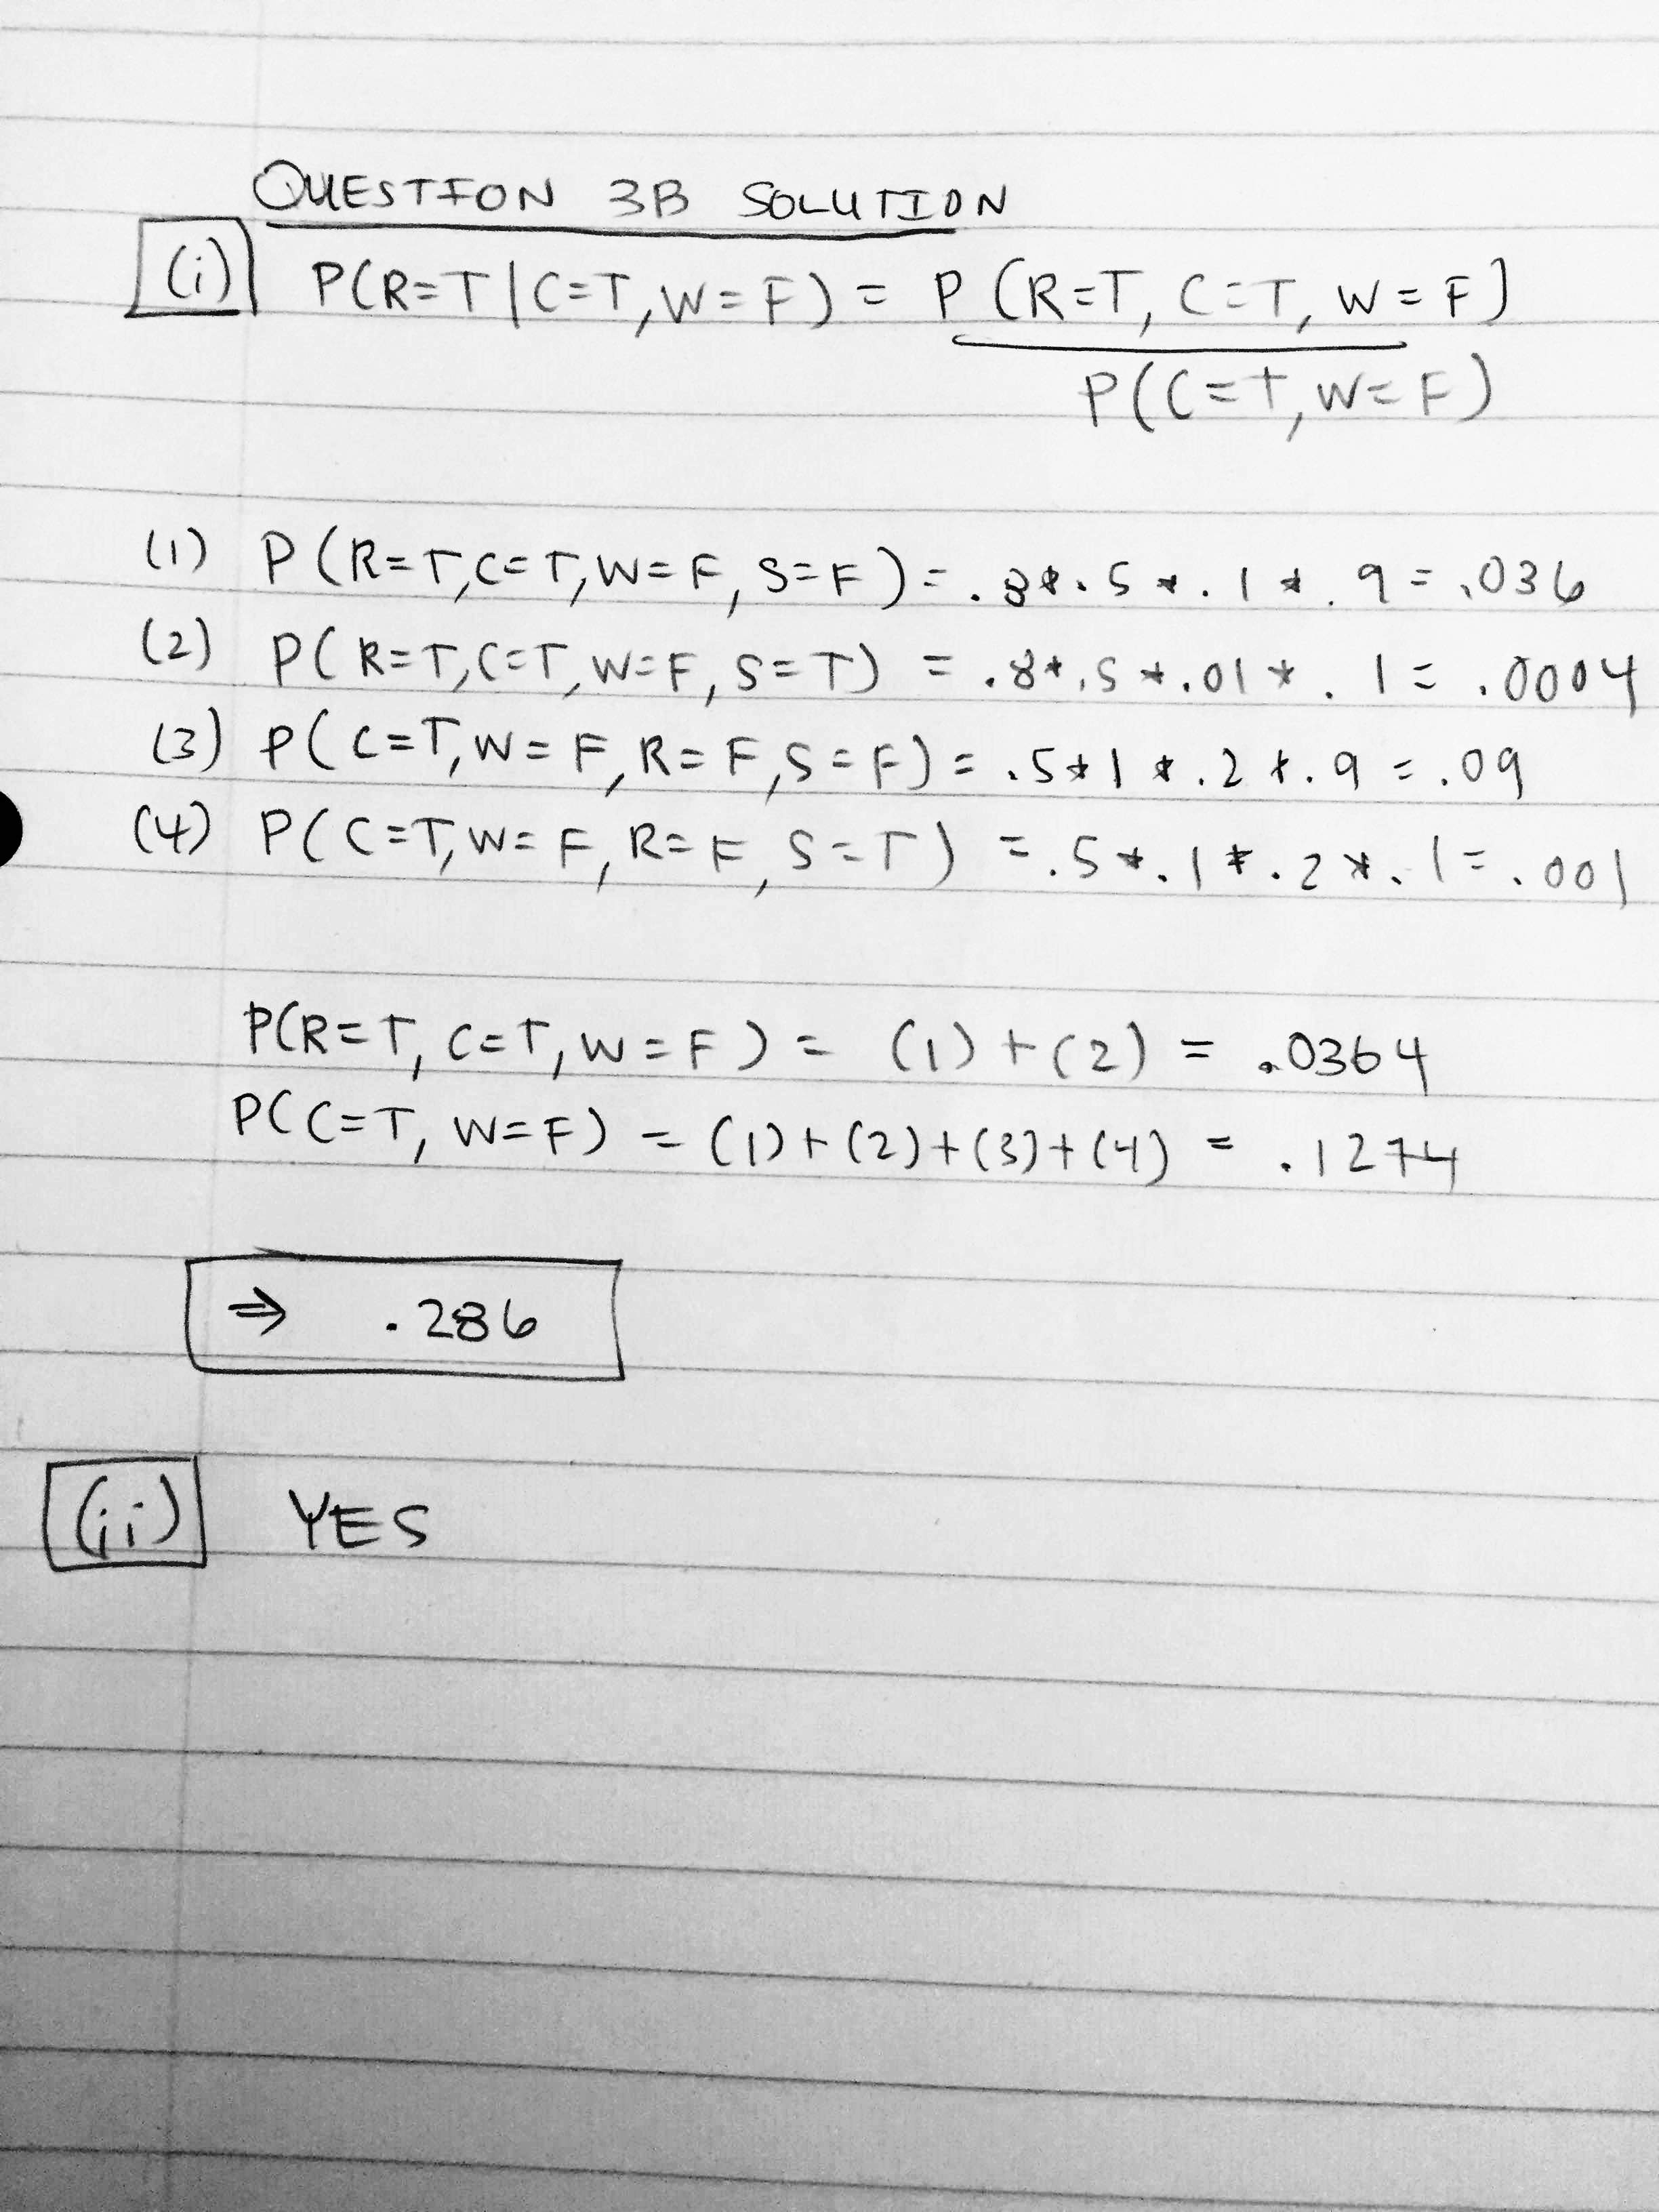 QUESTION 3B SOLUTION
(i) P(R=T|C=T,W=F) = P(R=T,C=T,W=F)
P(C=T,W=F)
(1) P(R=T,C=T,W=F,S=F) = .8*.5*.1*.9=.036
(2) P(R=T,C=T,W=F,S=T) = .8*.5*.01*.1=.0004
(3) P(C=T,W=F,R=F,S=F)=.5*1*.2*.9=.09
(4) P(C=T,W=F,R=F,S=T) =.5*.1*.2*.1=.001
P(R=T,C=T,W=F) = (1)+(2) = .0364
P(C=T,W=F) = (1)+(2)+(3)+(4) = .1274
⇒ .286
(ii) YES